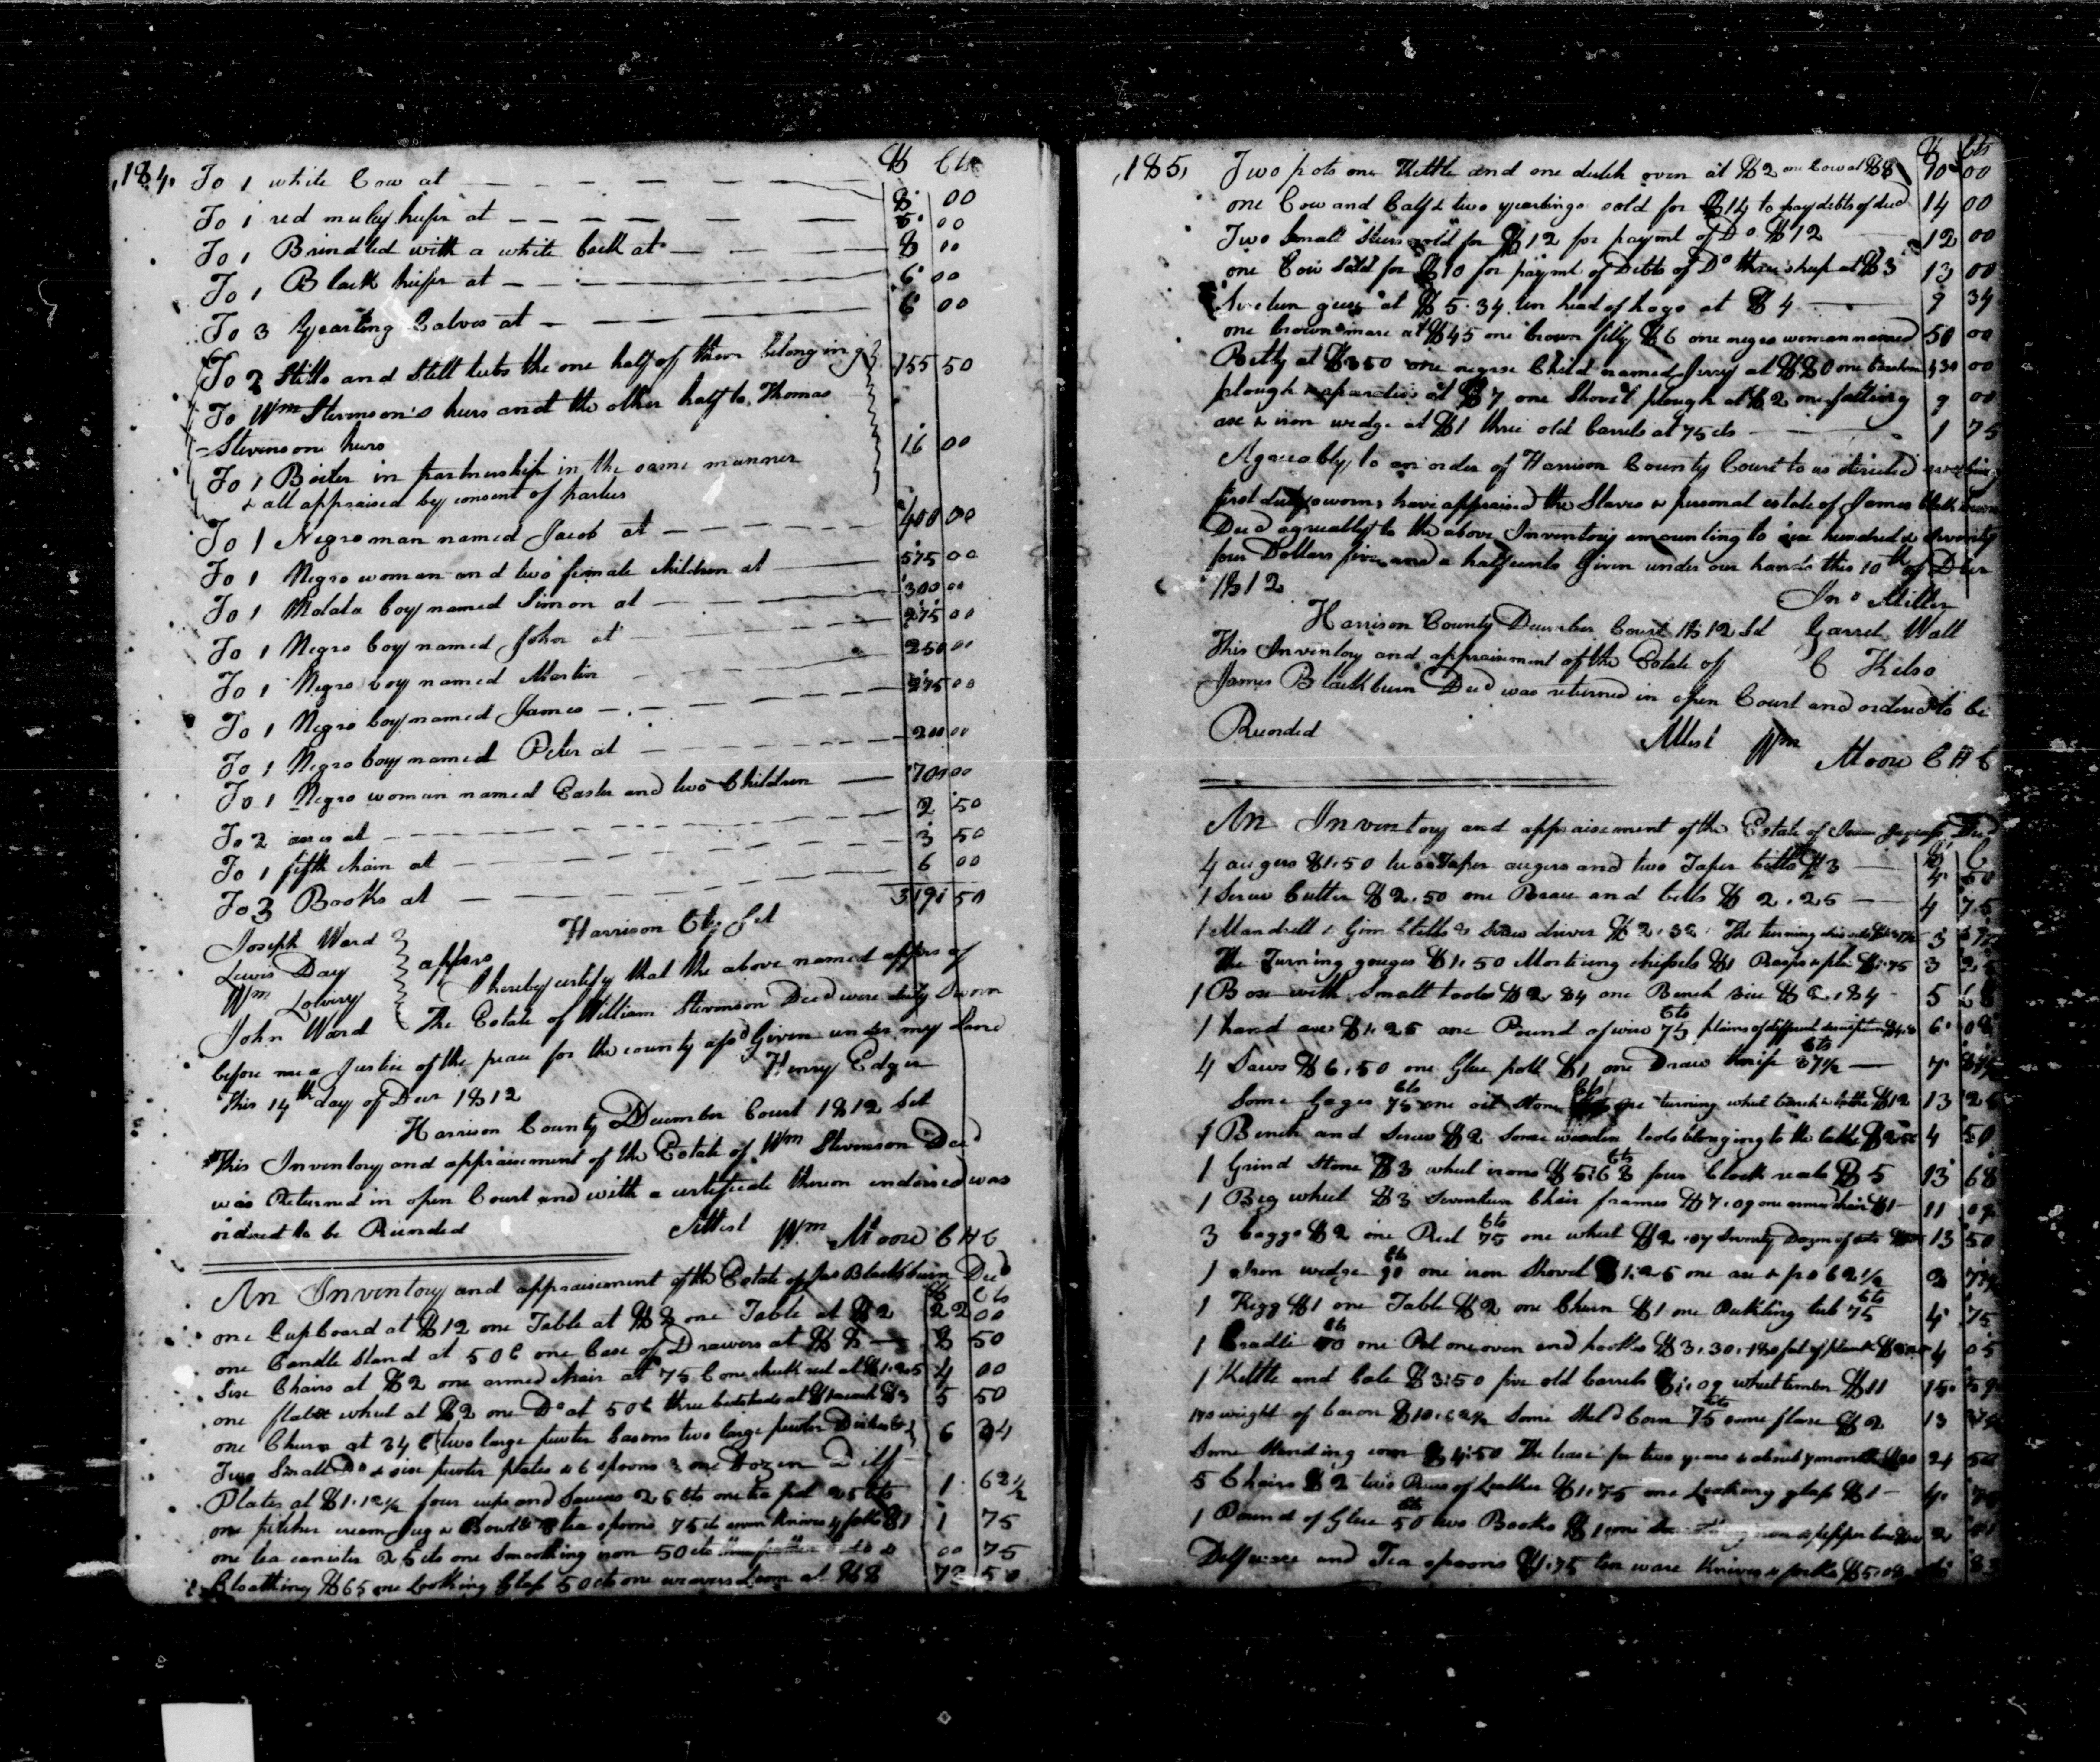 184. $ Cts
To 1 white Cow at 8 00
To 1 red muley heifer at 5 00
To 1 Brindled with a white back at 8 00
To 1 Black heifer at 6 00
To 3 Yearling Calves at 6 00
To 2 Stills and Still tubs the one half of them belonging 155 50
To Wm Stevenson's heirs and the other half to Thomas
Stevensons heirs
To 1 Boiler in partnership in the same manner 16 00
& all appraised by consent of parties
To 1 Negro man named Jacob at 400 00
To 1 Negro woman and two female children at 575 00
To 1 Molata boy named Simon at 300 00
To 1 Negro boy named John at 275 00
To 1 Negro boy named Martin 250 00
To 1 Negro boy named James 275 00
To 1 Negro boy named Peter at 200 00
To 1 Negro woman named Easter and two Children 700 00
To 2 axes at 2 50
To 1 fifth chain at 3 50
To 3 Books at 6 00
3191 50
Joseph Ward Harrison Cty Sct
Lewis Day apprs I hereby certify that the above named apprs of
Wm Lowery The Estate of William Stevenson Decd were duly Sworn
John Ward
before me a Justice of the peace for the county afsd Given under my hand
This 14th day of Decr 1812 Henry Edger
Harrison County December Court 1812 Sct
This Inventory and appraisement of the Estate of Wm Stevenson Decd
was Returned in open Court and with a certificate thereon endorsed was
ordered to be Recorded Attest Wm Moore C H C
An Inventory and appraisement of the Estate of Jas Blackburn Decd
$ Cts
one Cupboard at $12 one Table at $8 one Table at $2 22 00
one Candle Stand at 50 C one Case of Drawers at $8 8 50
Six Chairs at $2 one armed chair at 75 C one check reel at $1.25 4 00
one flax wheel at $2 one Do at 50 C three bedsteads at $1 each $3 5 50
one Churn at 34 C two large pewter basons two large pewter Dishes & 6 34
Two Small Do & six pewter plates & 6 spoons & one Dozen Delf
Plates at $1.12½ four cups and Saucers 25 Cts one tea pot 25 Cts 1 62½
one pitcher cream Jug & Bowl & tea spoons 75 cts seven Knives & forks $1 1 75
one tea canister 25 cts one Smoothing iron 50 cts 00 75
Cloathing $65 one Looking Glass 50 cts one weavers Loom at $8 73 50
185, $ Cts
Two pots one Kettle and one dutch oven at $2 one Cow at $8 10 00
one Cow and Calf & two yearlings sold for $14 to pay debts of decd 14 00
Two Small Steers sold for $12 for paymt of Do $12 12 00
one Cow Sold for $10 for paymt of Debts of Do three sheep at $3 13 00
Sixteen geese at $5.34 ten head of hogs at $4 9 34
one brown mare at $45 one brown filly $6 one negro woman named 50 00
Betty at $350 one negroe Child named Jerry at $80 one barshear 430 00
plough & aparatus at $7 one Shovel plough at $2 one falling 9 00
axe & iron wedge at $1 three old barrels at 75 cts 1 75
Agreeably to an order of Harrison County Court to us directed we being
first duly sworn, have appraised the Slaves & personal estate of James Blackburn
Decd agreeably to the above Inventory amounting to six hundred & seventy
four Dollars five and a half cents Given under our hands this 10th of Decr
1812
Jno Miller
Harrison County December Court 1812 Sct Garret Wall
This Inventory and appraisement of the Estate of C Kelso
James Blackburn Decd was returned in open Court and ordered to be
Recorded Attest Wm Moore C H C
An Inventory and appraisement of the Estate of Decd
4 augers $1.50 two Taper augers and two Taper bitts $3 4 50
1 Screw Cutter $2.50 one Brace and bitts $2.25 4 75
1 Mandrell & Gim bletts & Screw driver $2.32 The turning 3
The Turning gouges $1.50 Morticing chissels $1 Rasps & 75 3 25
1 Box with Small tools $2.84 one Bench vice $2.84 5 68
1 hand axe $1.25 one Pound of wire 75 Cts plains of different description 6 08
4 Saws $6.50 one Glue pott $1 one Draw knife 37½ Cts 7 87½
Some Gages 75 Cts one oil Stone Cts one turning wheel bench & lathe $12 13 25
1 Bench and Screw $2 Some wooden tools belonging to the lathe $2.50 4 50
1 Grind Stone $3 wheel irons $5.68 Cts four Clock reels $5 13 68
1 Big wheel $3 Seventeen Chair frames $7.09 one armed chair $1 11 09
3 baggs $2 one Reel 75 Cts one wheel $2 Twenty Dozen of 13 50
1 Iron wedge Cts one iron Shovel $1.25 one axe 62½
1 Kegg $1 one Table $2 one Churn $1 one Pickling tub 75 Cts 4 75
1 Cradle Cts one Pot one oven and hooks $3.30. 180 feet of plank 4 05
1 Kettle and bale $3.50 five old barrels $1.09 wheel timber $11 15 59
170 weight of bacon $10.62½ Some Shel'd Corn 75 Cts some flax $2 13 37½
Some Standing corn $4.50 The lease for two years & about 7 months $20 24 50
5 Chairs $2 two Pieces of Leather $1.75 one Looking glass $1 4 75
1 Pound of Glue 50 Cts two Books $1 one & pepper box 2
Delfware and Tea spoons $1.75 ten ware Knives & forks $5.08